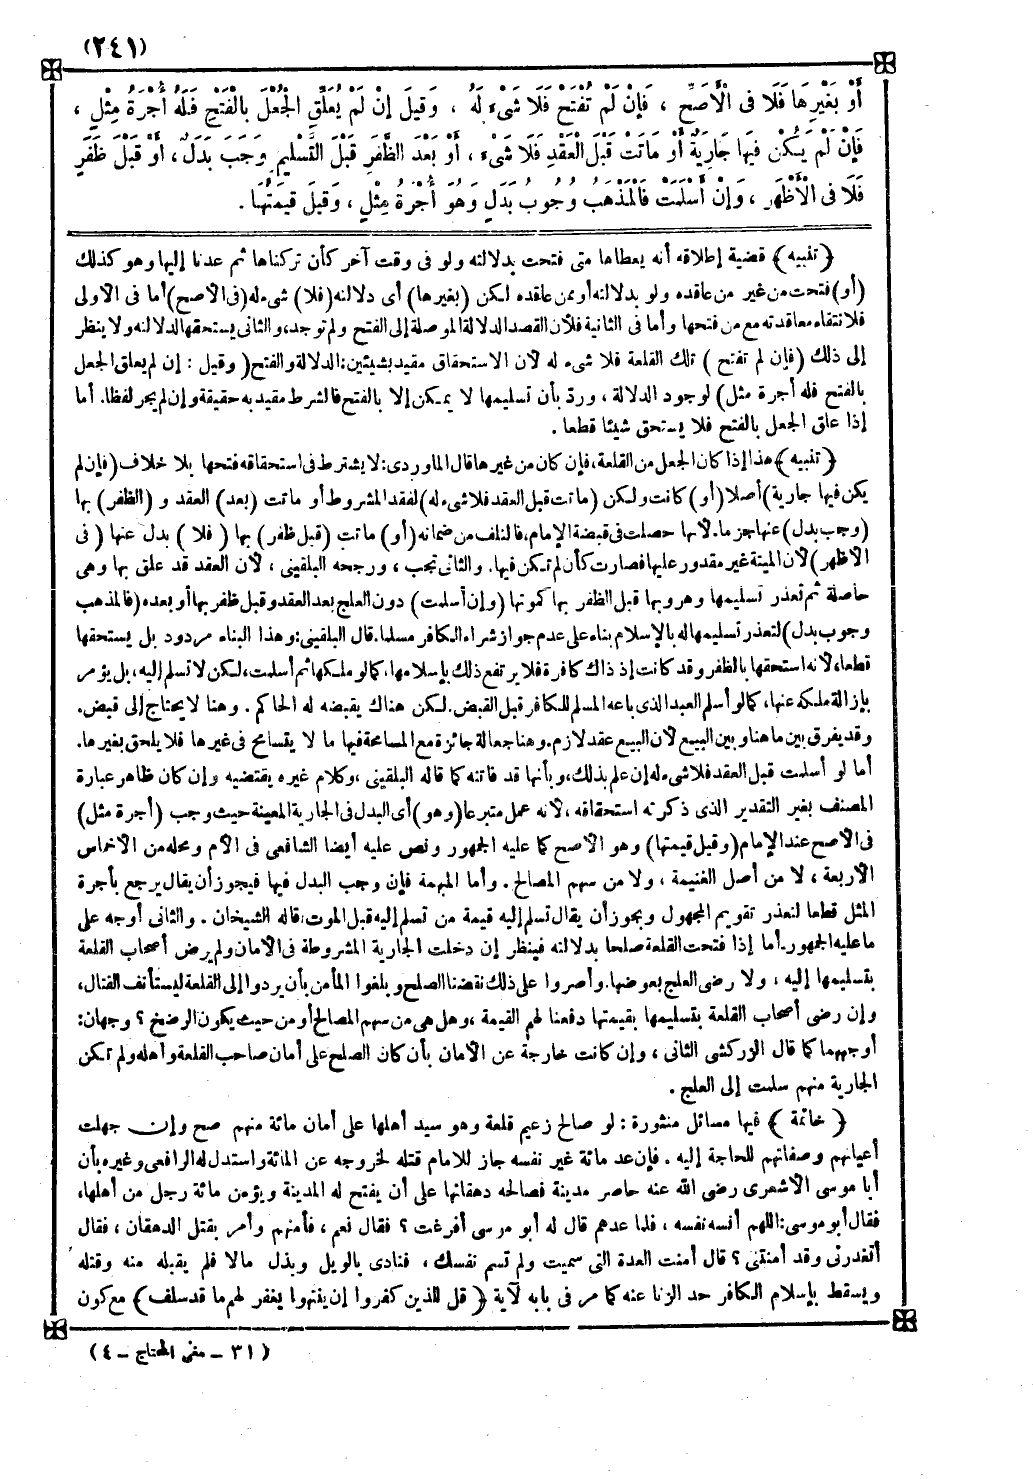 (٢٤١)
أَوْ بِغَيْرِهَا فَلَا فِى الْأَصَحِّ ، فَإِنْ لَمْ تُفْتَحْ فَلَا شَىْءَ لَهُ ، وَقِيلَ إِنْ لَمْ يُعَلِّقِ الْجُعْلَ بِالْفَتْحِ فَلَهُ أُجْرَةُ مِثْلٍ ،
فَإِنْ لَمْ يَكُنْ فِيهَا جَارِيَةٌ أَوْ مَاتَتْ قَبْلَ الْعَقْدِ فَلَا شَىْءَ ، أَوْ بَعْدَ الظَّفَرِ قَبْلَ التَّسْلِيمِ وَجَبَ بَدَلٌ ، أَوْ قَبْلَ ظَفَرٍ
فَلَا فِى الْأَظْهَرِ ، وَإِنْ أَسْلَمَتْ فَالْمَذْهَبُ وُجُوبُ بَدَلٍ وَهُوَ أُجْرَةُ مِثْلٍ ، وَقِيلَ قِيمَتُهَا .
﴿ تنبيه ﴾ قضية إطلاقه أنه يعطاها متى فتحت بدلالته ولو فى وقت آخر كأن تركناها ثم عدنا إليها وهو كذلك
(أو) فتحت من غير من عاقده ولو بدلالته أو ممن عاقده لكن (بغيرها) أى دلالته (فلا) شىء له (فى الأصح) أما فى الأولى
فلانتفاء معاقدته مع من فتحها وأما فى الثانية فلأن القصد الدلالة الموصلة إلى الفتح ولم توجد، والثانى يستحقها لدلالته ولا ينظر
إلى ذلك (فإن لم تفتح ) تلك القلعة فلا شىء له لأن الاستحقاق مقيد بشيئين: الدلالة والفتح (وقيل : إن لم يعلق الجعل
بالفتح فله أجرة مثل) لوجود الدلالة ، وردّ بأن تسليمها لا يمكن إلا بالفتح فالشرط مقيد به حقيقة وإن لم يجر لفظا. أما
إذا علق الجعل بالفتح فلا يستحق شيئا قطعا .
﴿ تنبيه ﴾ هذا إذا كان الجعل من القلعة، فإن كان من غيرها قال الماوردى: لا يشترط فى استحقاقه فتحها بلا خلاف (فإن لم
يكن فيها جارية) أصلا (أو) كانت ولكن (ماتت قبل العقد فلا شىء له) لفقد المشروط أو ماتت (بعد) العقد و (الظفر) بها
(وجب بدل) عنها جزما. لأنها حصلت فى قبضة الإمام، فالتلف من ضمانه (أو) ماتت (قبل ظفر) بها ( فلا ) بدل عنها ( فى
الأظهر) لأن الميتة غير مقدور عليها فصارت كأن لم تكن فيها. والثانى تجب ، ورجحه البلقينى ، لأن العقد قد علق بها وهى
حاصلة ثم تعذر تسليمها وهروبها قبل الظفر بها كموتها (وإن أسلمت) دون العلج بعد العقد وقبل ظفر بها أو بعده (فالمذهب
وجوب بدل) لتعذر تسليمها له بالإسلام بناء على عدم جواز شراء الكافر مسلما. قال البلقينى: وهذا البناء مردود بل يستحقها
قطعا، لأنه استحقها بالظفر وقد كانت إذ ذاك كافرة فلا يرتفع ذلك بإسلامها، كما لو ملكها ثم أسلمت، لكن لا تسلم إليه، بل يؤمر
بإزالة ملكه عنها، كما لو أسلم العبد الذى باعه المسلم للكافر قبل القبض. لكن هناك يقبضه له الحاكم . وهنا لا يحتاج إلى قبض.
وقد يفرق بين ما هنا وبين البيع لأن البيع عقد لازم. وهنا جعالة جائزة مع المسامحة فيها ما لا يتسامح فى غيرها فلا يلحق بغيرها.
أما لو أسلمت قبل العقد فلا شىء له إن علم بذلك، وبأنها قد فاتته كما قاله البلقينى ، وكلام غيره يقتضيه وإن كان ظاهر عبارة
المصنف بغير التقدير الذى ذكرته استحقاقه ، لأنه عمل متبرعا (وهو) أى البدل فى الجارية المعينة حيث وجب (أجرة مثل)
فى الأصح عند الإمام (وقيل قيمتها) وهو الأصح كما عليه الجمهور ونص عليه أيضا الشافعى فى الأم ومحله من الأخماس
الأربعة ، لا من أصل الغنيمة ، ولا من سهم المصالح . وأما المبهمة فإن وجب البدل فيها فيجوز أن يقال يرجع بأجرة
المثل قطعا لتعذر تقويم المجهول ويجوز أن يقال تسلم إليه قيمة من تسلم إليه قبل الموت، قاله الشيخان . والثانى أوجه على
ما عليه الجمهور. أما إذا فتحت القلعة صلحا بدلالته فينظر إن دخلت الجارية المشروطة فى الأمان ولم يرض أصحاب القلعة
بتسليمها إليه ، ولا رضى العلج بعوضها. وأصروا على ذلك نقضنا الصلح وبلغوا المأمن بأن يردوا إلى القلعة ليستأنف القتال،
وإن رضى أصحاب القلعة بتسليمها بقيمتها دفعنا لهم القيمة ، وهل هى من سهم المصالح أو من حيث يكون الرضخ ؟ وجهان:
أوجههما كما قال الزركشى الثانى ، وإن كانت خارجة عن الأمان بأن كان الصلح على أمان صاحب القلعة وأهله ولم تكن
الجارية منهم سلمت إلى العلج .
﴿ خاتمة ﴾ فيها مسائل منثورة : لو صالح زعيم قلعة وهو سيد أهلها على أمان مائة منهم صح وإن جهلت
أعيانهم وصفاتهم للحاجة إليه . فإن عد مائة غير نفسه جاز للإمام قتله لخروجه عن المائة واستدل له الرافعى وغيره بأن
أبا موسى الأشعرى رضى الله عنه حاصر مدينة فصالحه دهقانها على أن يفتح له المدينة ويؤمن مائة رجل من أهلها،
فقال أبو موسى: اللهم أنسه نفسه ، فلما عدهم قال له أبو موسى أفرغت ؟ فقال نعم ، فأمنهم وأمر بقتل الدهقان ، فقال
أتغدرنى وقد أمنتنى ؟ قال أمنت العدة التى سميت ولم تسم نفسك ، فنادى بالويل وبذل مالا فلم يقبله منه وقتله
ويسقط بإسلام الكافر حد الزنا عنه كما مر فى بابه لآية ﴿ قل للذين كفروا إن ينتهوا يغفر لهم ما قد سلف ﴾ مع كون
( ٣١ ـ مغنى المحتاج ـ ٤ )